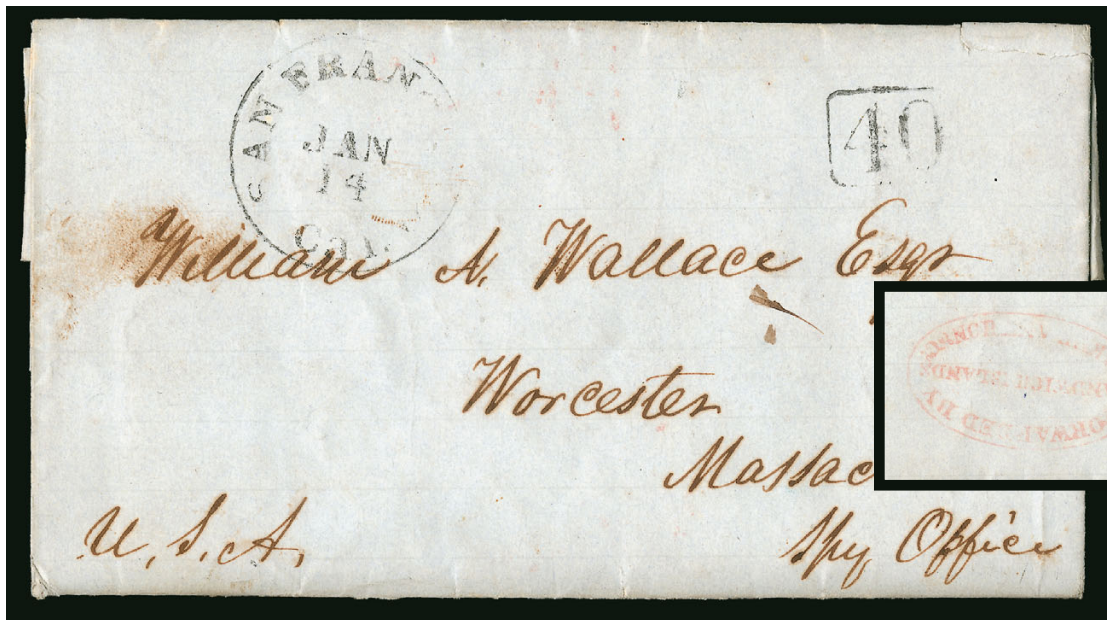 SAN FRAN
JAN
14
Cal.
40
William N. Wallace Esqr
Worcester
Massac
U.S.A.
Spy Office
ISLANDS
BY